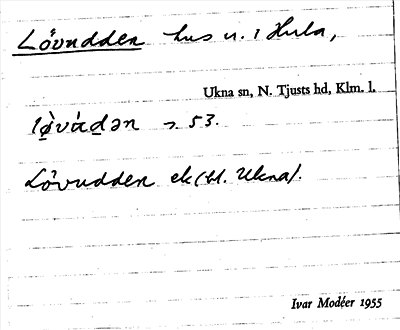 Lövudden hus n. i Hula,
Ukna sn, N. Tjusts hd, Klm. l.
53.
Lövudden ek (bl. Ukna).
Ivar Modéer 1955